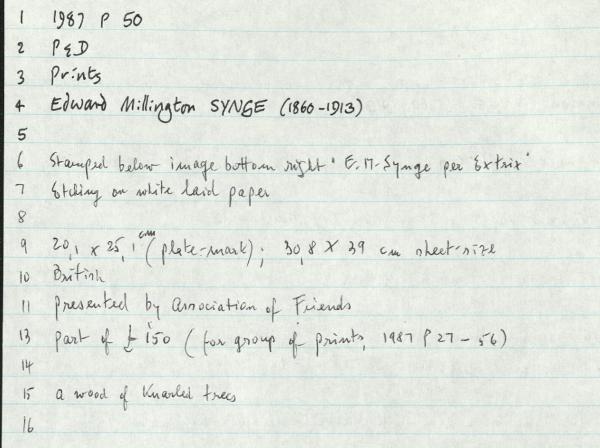 1 1987 P 50
2 P&D
3 Prints
4 Edward Millington SYNGE (1860-1913)
5
6 Stamped below image bottom right 'E.M. Synge per Extrix'
7 Etching on white laid paper
8
9 20,1 x 25,1 cm (plate-mark); 30,8 x 39 cm sheet-size
10 British
11 presented by Association of Friends
13 part of £150 (for group of prints, 1987 P 27-56)
14
15 a wood of Knarled trees
16